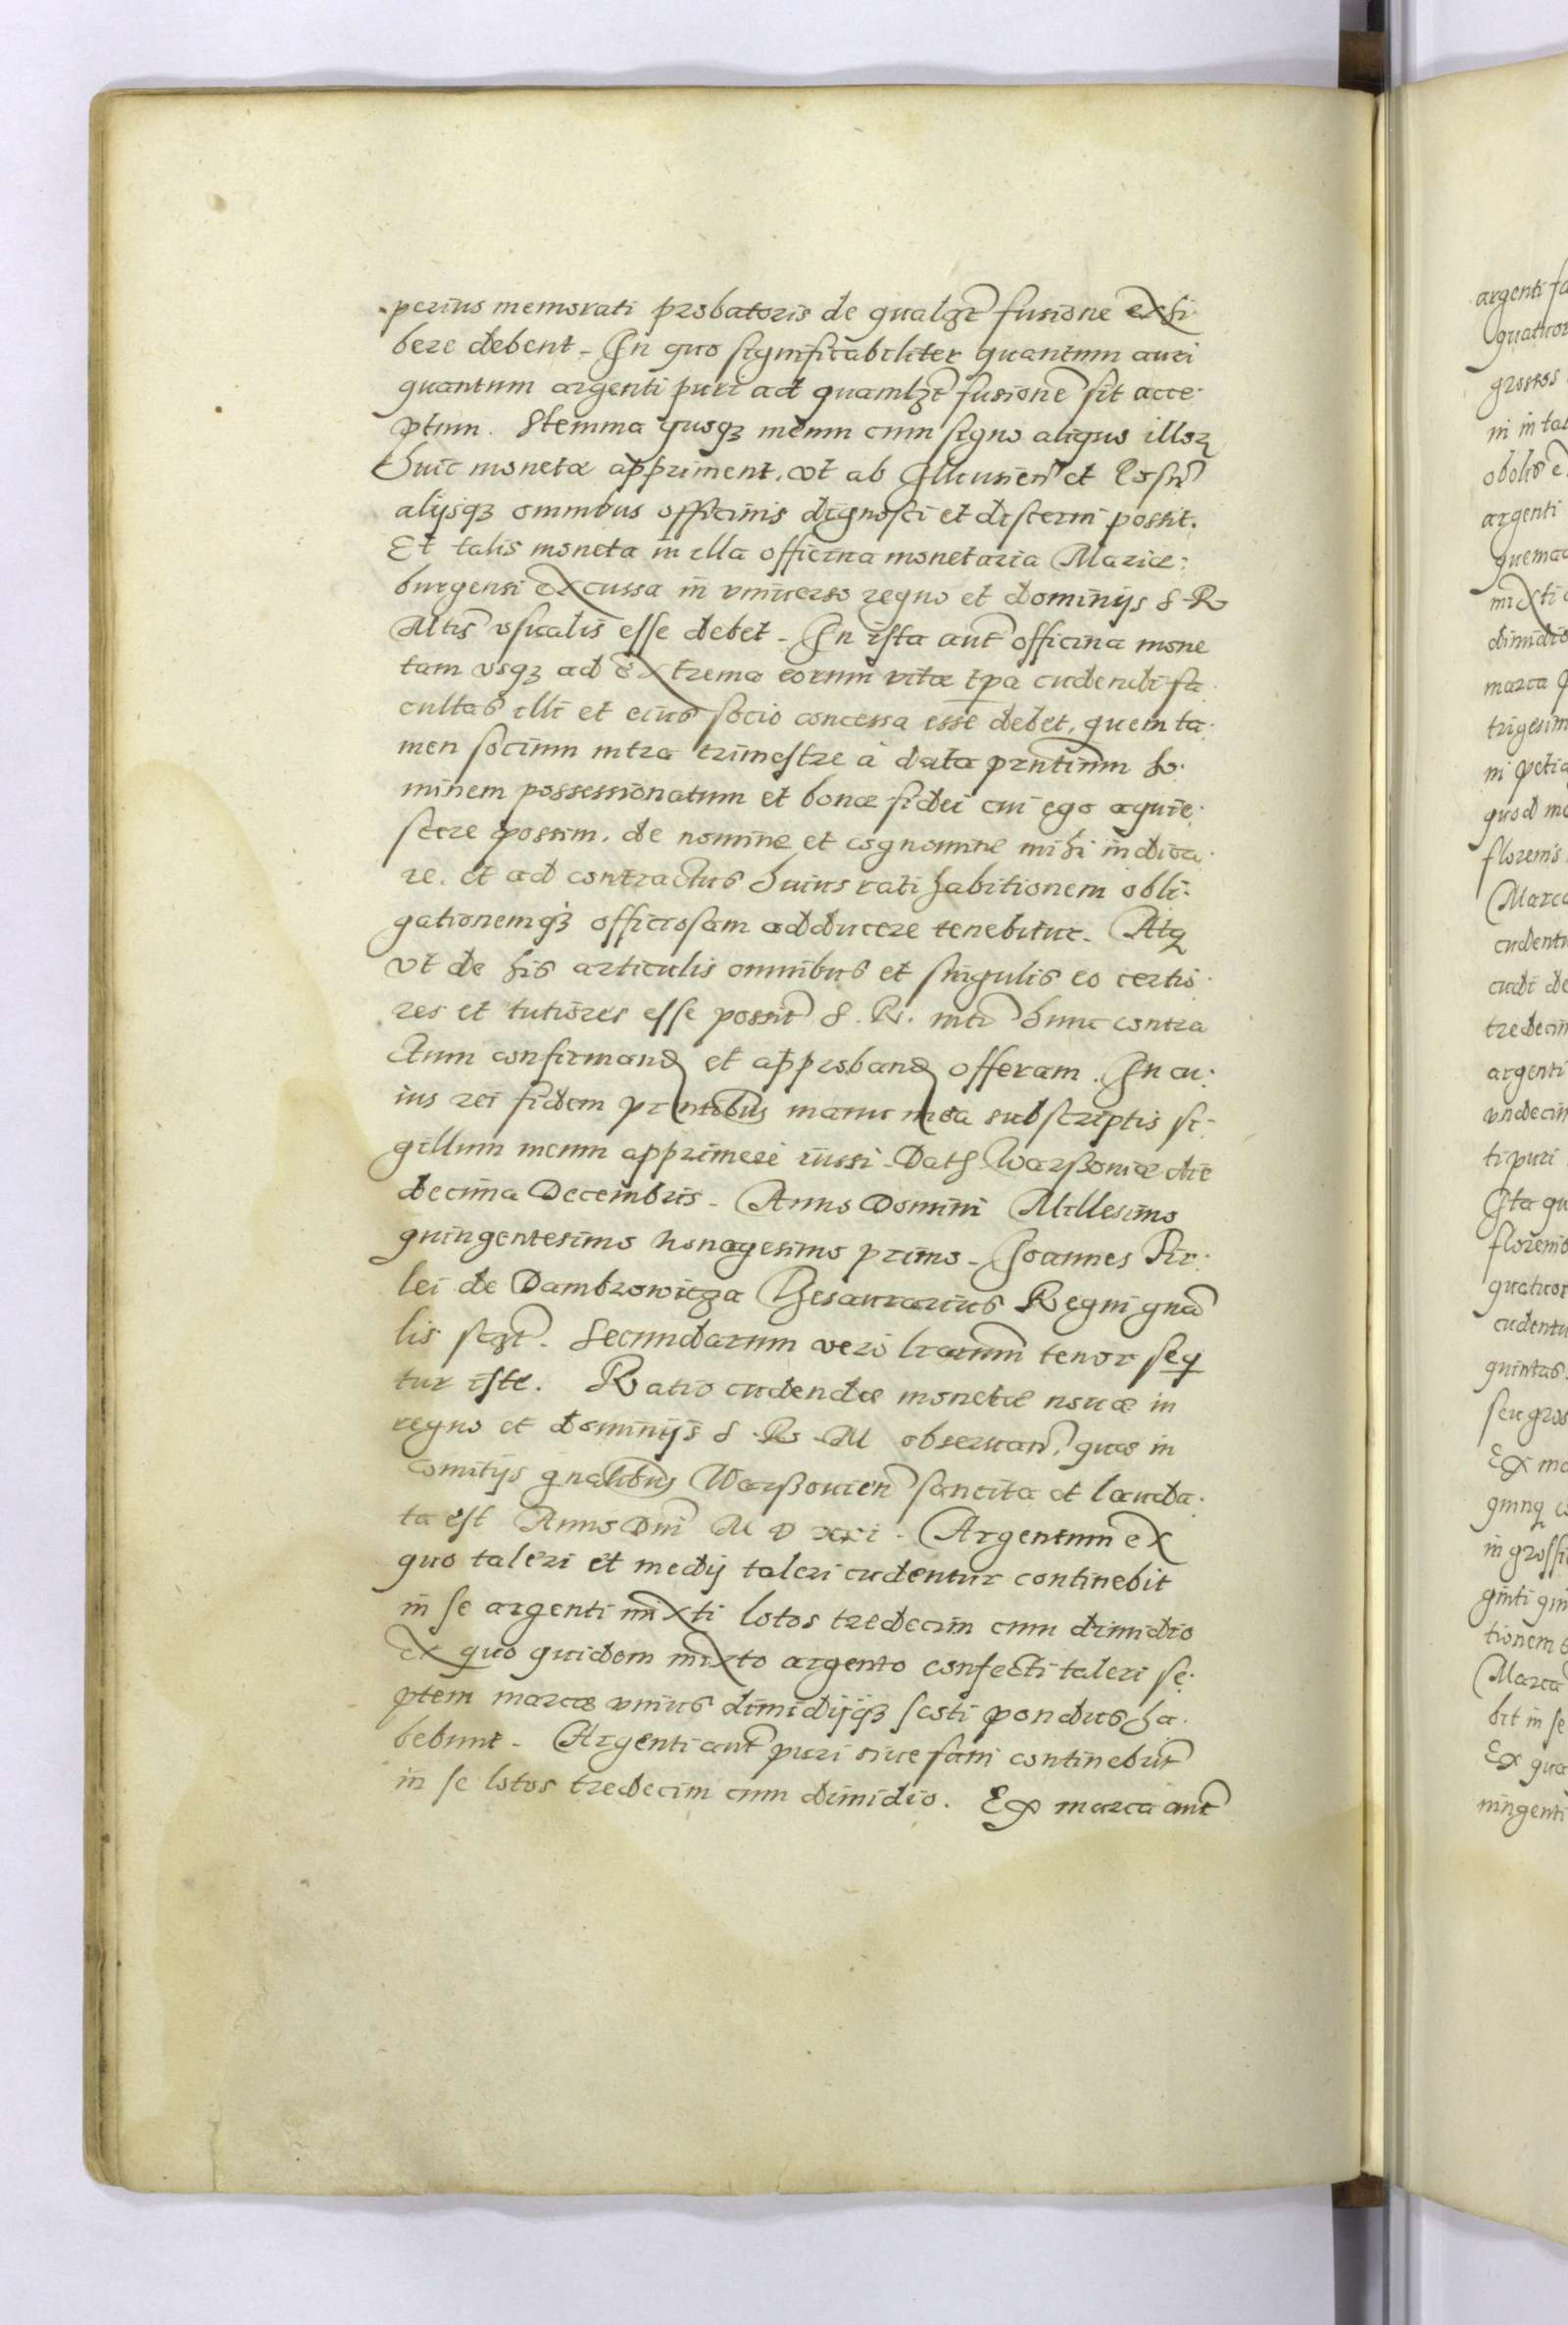 perius memorati probatoris de qualzt fusione exhi-
bere debent. In quo significabiliter quantum auri
quantum argenti puri ad quamlzt fusione sit acce-
ptum. Stemma quoqz meum cum signo aliquo illoꝝ
huic monetæ appriment, vt ab Illcusien et Posn
alijsqz omnibus officinis dignosci et discerni possit.
Et talis moneta in illa officina monetaria Mariæ-
burgensi excussa in vniuerso regno et dominijs S. R
Mtis vsualis esse debet. In ista aut officina mone
tam vsqz ad extrema eorum vitæ tpa cudendi fa-
cultas illi et eius socio concessa esse debet, quem ta-
men socium intra trimestre à data prntium ho-
minem possessionatum et bonæ fidei cui ego aquie-
scere possim, de nomine et cognomine mihi indica-
re, et ad contractus huius ratihabitionem obli-
gationemqz officiosam adducere tenebitur. Atqz
vt de his articulis omnibus et singulis eo certio-
res et tutiores esse possit S. R. mti hunc contra
ctum confirmand et approband offeram. In cu-
ius rei fidem prntibus manu mea subscriptis si-
gillum meum apprimere iussi. Dat Warßouiæ die
decima Decembris. Anno Domini Millesimo
quingentesimo nonagesimo primo. Joannes Fir-
lei de Dambrowicza Thesaurarius Regni gna
lis sczt. Secundarum vero lrarum tenor seq
tur iste. Ratio cudendæ monetæ nouæ in
regno et dominijs S. R. M obseruan, quæ in
comitijs gnalibus Warßouien sancita et lauda-
ta est Anno Dni M D xxi. Argentum ex
quo taleri et medij taleri cudentur continebit
in se argenti mixti lotos tredecim cum dimidio
Ex quo quidem mixto argento confecti taleri se-
ptem marcæ vnius dimidijqz scoti pondus ha-
bebunt. Argenti aut puri siue fani continebut
in se lotos tredecim cum dimidio. Ex marca aut
argenti
grossos
argenti
marca
florenis
tredecim
argenti
ti puri
Ita
cudentu
quintas
in grossi
Marca
bit in se
Ex qua
ningenti